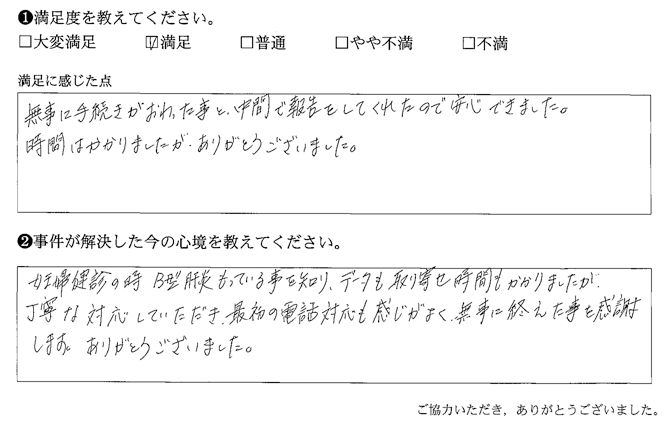 ❶満足度を教えてください。
□大変満足 ☑満足 □普通 □やや不満 □不満
満足に感じた点
無事に手続きがおわった事と、中間で報告をしてくれたので安心できました。
時間はかかりましたが、ありがとうございました。
❷事件が解決した今の心境を教えてください。
妊婦健診の時 B型肝炎もっている事を知り、データも取り寄せ時間もかかりましたが、
丁寧な対応していただき、最初の電話対応も感じがよく、無事に終えた事を感謝
します。ありがとうございました。
ご協力いただき，ありがとうございました。